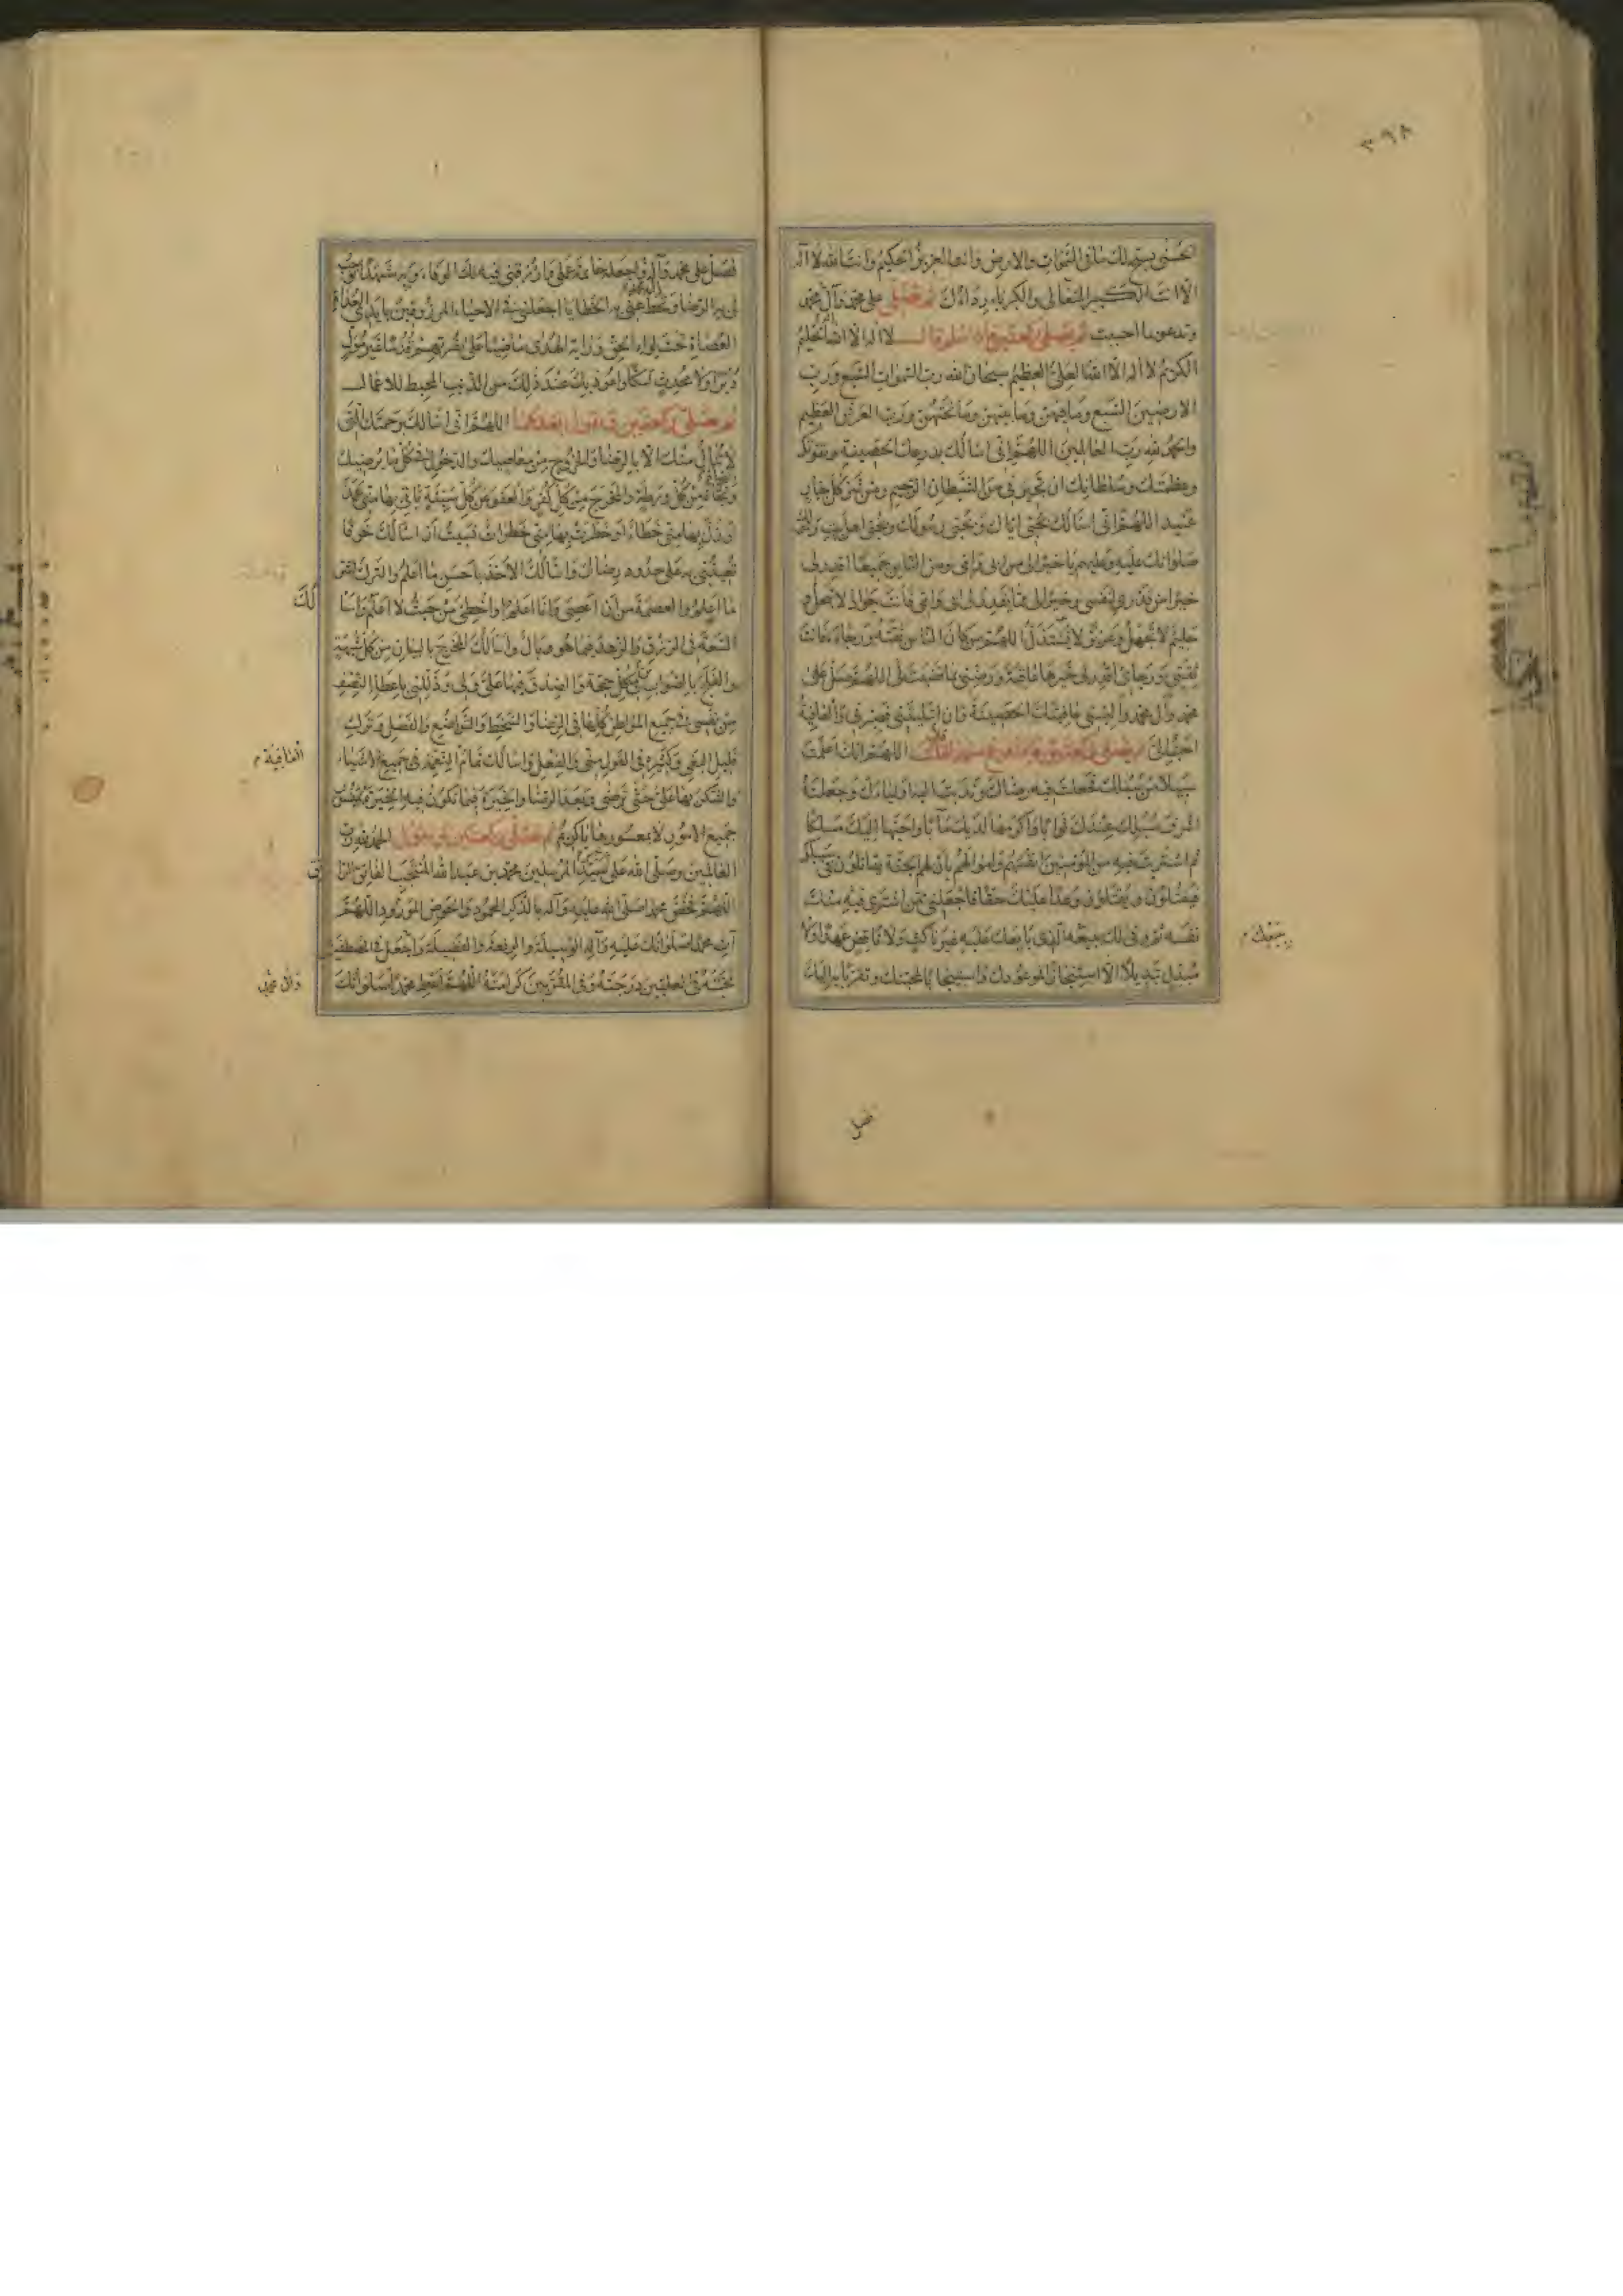 ٣٩٨
الحسنى يسبح لك ما في السموات والارض وانت العزيز الحكيم وانت الله لا اله
الا انت الكبير المتعالي والكبرياء رداؤك ثم تصلي على محمد وآل محمد
وتدعو بما احببت ثم يصلي ركعتين فاذا سلم قال لا اله الا الله الحليم
الكريم لا اله الا الله العلي العظيم سبحان الله رب السموات السبع ورب
الارضين السبع وما فيهن وما بينهن وما تحتهن ورب العرش العظيم
والحمد لله رب العالمين اللهم اني اسالك بدرعك الحصينة وبقوتك
وعظمتك وسلطانك ان تجيرني من الشيطان الرجيم ومن شر كل جبار
عنيد اللهم اني اسالك بحبي اياك وبحبي رسولك وبحبي اهل بيت رسولك
صلواتك عليه وعليهم يا خيرا لي من ابي وامي ومن الناس جميعا اقدر لي
خيرا من قدري لنفسي وخيرا لي مما يقدر لي ابي وامي فانت جواد لا تبخل و
حليم لا تجهل وعزيز لا تستذل اللهم من كان الناس ثقته ورجاءه فانت
ثقتي ورجائي اقدر لي خيرها عاقبة ورضني بما قضيت لي اللهم صل على
محمد وآل محمد والبسني عافيتك الحصينة وان ابتليتني فصبرني والعافية
احب الي اللهم انك اعلمت
سبيلا من سبلك فجعلت فيه رضاك وندبت اليه اولياءك وجعلته
اشرف سبلك عندك ثوابا واكرمها لديك مآبا واحبها اليك مسلكا
ثم اشتريت فيه من المؤمنين انفسهم واموالهم بان لهم الجنة يقاتلون في سبيلك
فيقتلون ويقتلون وعدا عليك حقا فاجعلني ممن اشترى فيه منك
نفسه ثم وفى لك ببيعه الذي بايعك عليه غير ناكث ولا ناقض عهدا ولا
مبدل تبديلا الا استنجازا لموعودك واستيجابا لمحبتك وتقربا به اليك
ببيعك
فصل
فصل على محمد وآله واجعله خاتمة عملي وارزقني فيه لك الوفاء وبه مشهدا توجب
لي به الرضا وتحط عني به الخطايا اجعلني في الاحياء المرزوقين بايدي العداة
العصاة تحت لواء الحق وراية الهدى ماضيا على نصرتهم قدما غير مول
دبرا ولا محدث شكا واعوذ بك عند ذلك من الذنب المحبط للاعمال
ثم تصلي ركعتين وتقول بعدهما اللهم اني اسالك برحمتك التي
لا تنال منك الا بالرضا والخروج من معاصيك والدخول في كل ما يرضيك
ونجاة من كل ورطة والمخرج من كل كفر والعفو عن كل سيئة ياتي بها مني عمد
او زل بها مني خطاء او خطرت بها مني خطرات نسيت ان اسالك خوفا
تعينني به على حدود رضاك واسالك الاخذ باحسن ما اعلم والترك لشر
ما اعلم والعصمة من ان اعصي وانا اعلم او اخطئ من حيث لا اعلم واسا
لك
السعة في الرزق والزهد فيما هو وبال واسالك المخرج بالبيان من كل شبهة
والفلج بالصواب في كل حجة والصدق فيما علي ولي وذللني باعطاء النصف
من نفسي في جميع المواطن كلها في الرضا والسخط والتواضع والفضل وترك
قليل البغي وكثيره في القول مني والفعل واسالك تمام النعمة في جميع الاشياء
والشكر بها علي حتى ترضى وبعد الرضا والخيرة فيما تكون فيه الخيرة بميسور
جميع الامور لا بمعسورها يا كريم ثم تصلي ركعتين وتقول الحمد لله رب
العالمين وصلى الله على سيد المرسلين محمد بن عبد الله المنتجب الفاتق الرا
تق
اللهم فخص محمدا صلى الله عليه وآله بالذكر المحمود والحوض المورود اللهم
آت محمدا صلواتك عليه وآله الوسيلة والرفعة والفضيلة واجعل في المصطفين
محبته وفي العليين درجته وفي المقربين كرامته اللهم اعط محمدا صلواتك
وآل محمد